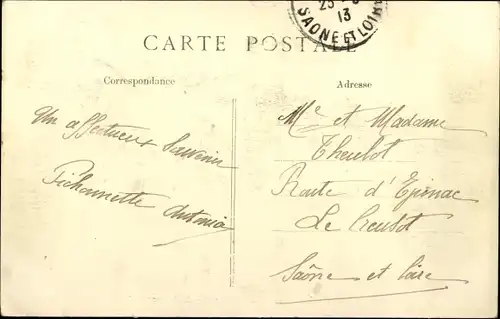 25
13
SAONE ET LOIRE
CARTE POSTALE
Correspondance
Adresse
Un affectueux Souvenir
Antonia
Mr et Madame
Theulot
Route d'Epinac
Le Creusot
Saône et Loire